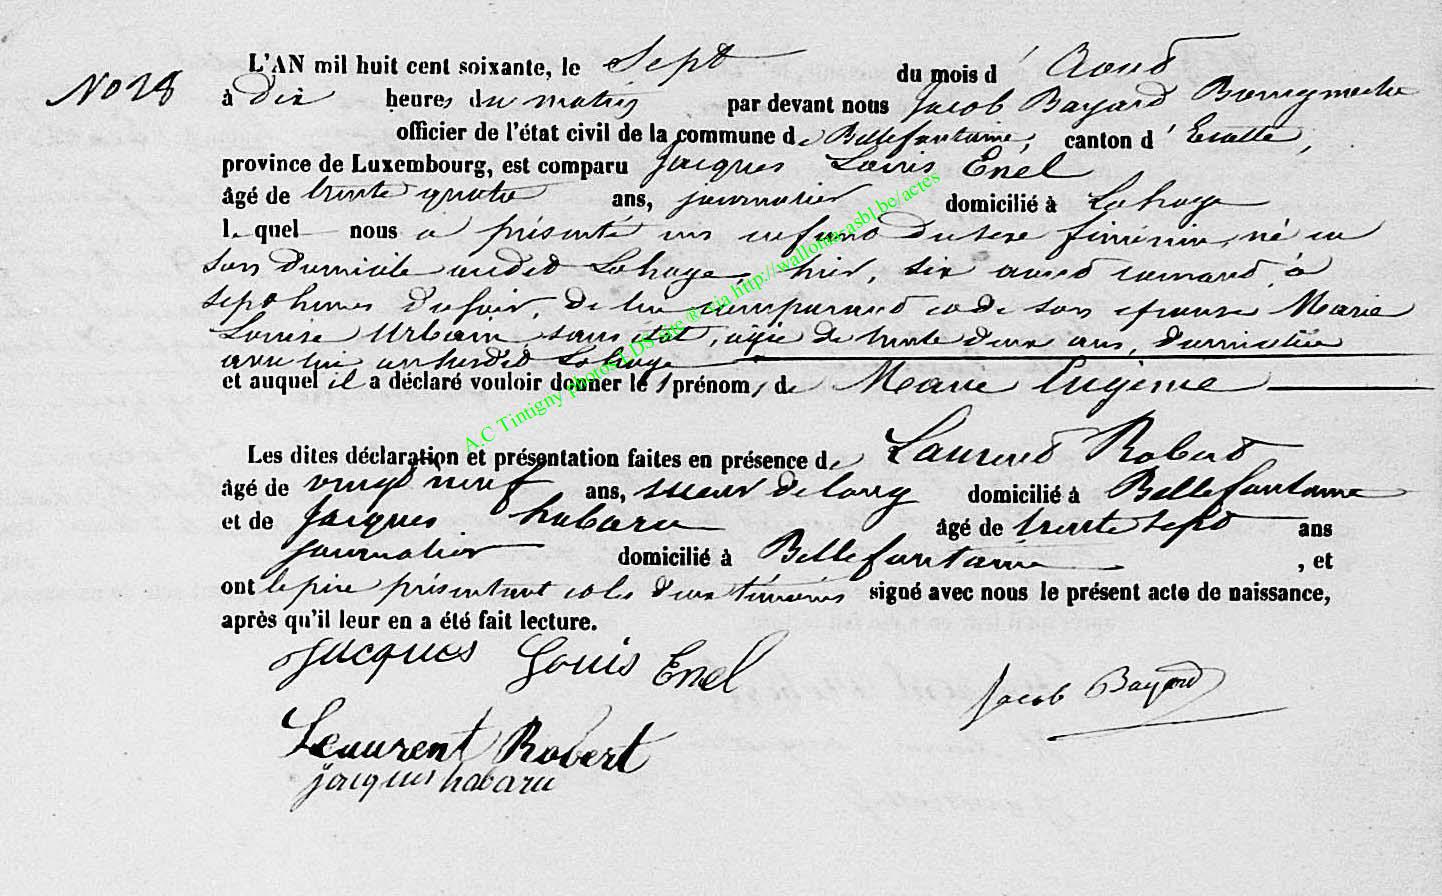 No 28
L'AN mil huit cent soixante, le Sept du mois d' Aout
à dix heures du matin par devant nous Jacob Bayard Bourgmestre
officier de l'état civil de la commune de Bellefontaine, canton d' Etalle,
province de Luxembourg, est comparu Jacques Louis Enel
âgé de trente quatre ans, journalier domicilié à Lahage
lequel nous a présenté un enfant du sexe féminin, né en
son domicile audit Lahage, hier, six aout courant, à
sept heures du soir, de lui comparant et de son épouse Marie
Louise Urbain, sans état, agée de trente deux ans, domiciliée
avec lui audit Lahage
et auquel il a déclaré vouloir donner le prénom, de Marie Eugénie
Les dites déclaration et présentation faites en présence de Laurent Robert
âgé de vingt neuf ans, scieur de long domicilié à Bellefontaine
et de Jacques habaru âgé de trente sept ans
journalier domicilié à Bellefontaine, et
ont le père présentant et les deux témoins signé avec nous le présent acte de naissance,
après qu'il leur en a été fait lecture.
Jacques Louis Enel
Jacob Bayard
Leaurent Robert
jacques habaru
A.C Tintigny photos LDS site ® via http://wallonia-asbl.be/actes